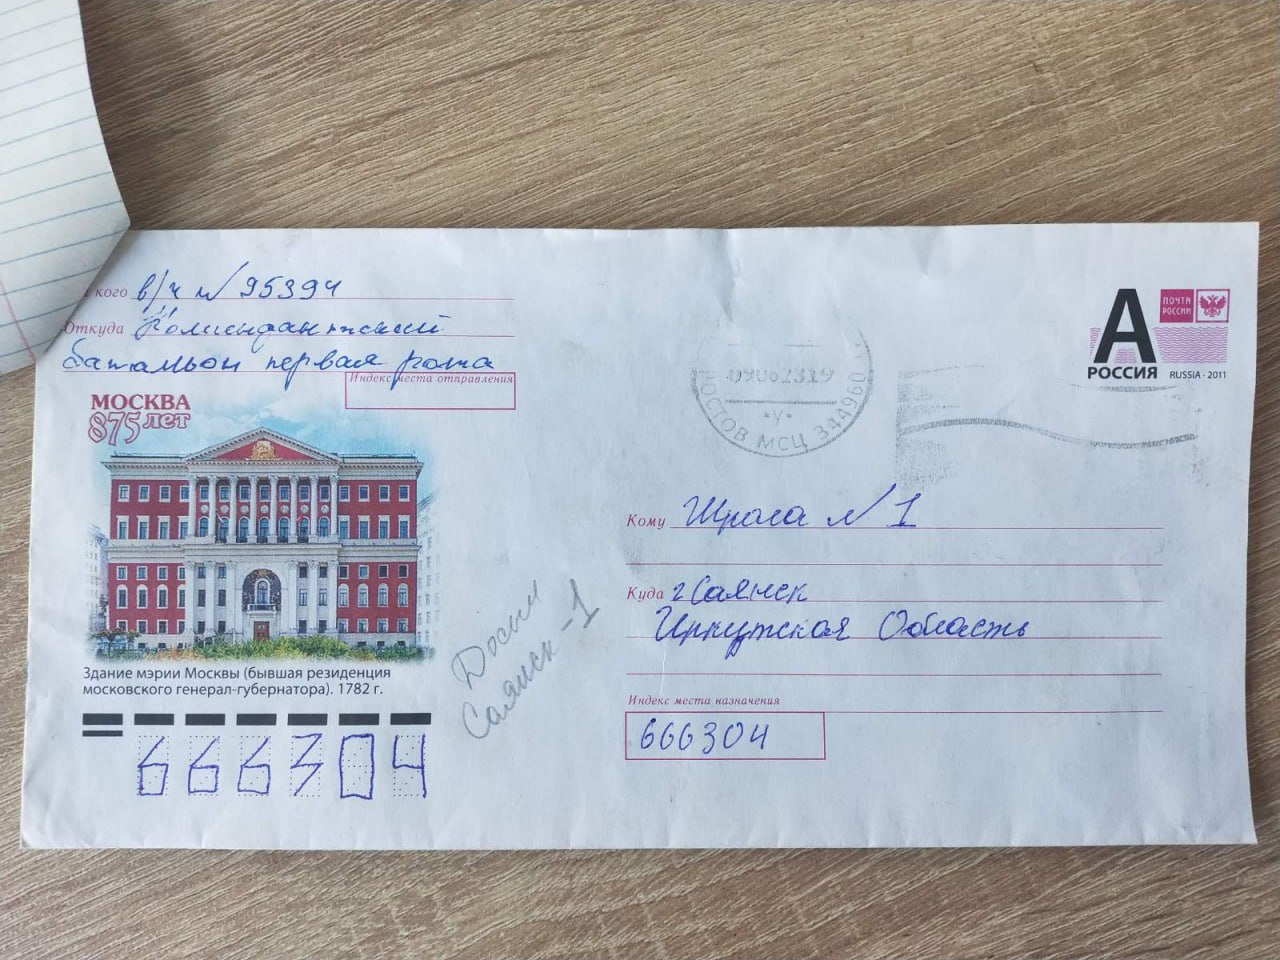 кого в/ч № 95394
Откуда Комендантский
батальон первая рота
Индекс места отправления
МОСКВА
875 лет
Здание мэрии Москвы (бывшая резиденция
московского генерал-губернатора). 1782 г.
666304
Досыл
Саянск-1
РОСТОВ МСЦ 344960
09062319
У
А
РОССИЯ
ПОЧТА
РОССИИ
RUSSIA · 2011
Кому Школа № 1
Куда г Саянск
Иркутская Область
Индекс места назначения
666304